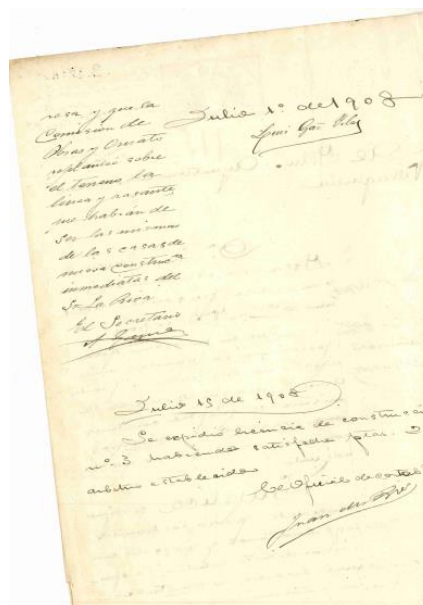 rosa y que la
Comision de
Obras y Ornato
replanteó sobre
el terreno la
linea y rasante
que habian de
ser las mismas
de las casas de
nueva construcn
inmediatas del
Sr La Riva
El Secretario
Julio 1º de 1908
Luis
Julio 15 de 1908
Se expidio licencia de construcci
nº 3 habiendo satisfecho ptas.
arbitrio establecido
El Oficial de
Juan